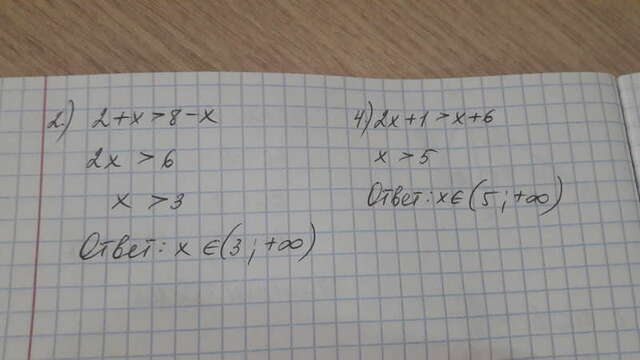 2.) 2+x>8-x
2x >6
x >3
Ответ: x ∈(3;+∞)
4) 2x+1>x+6
x >5
Ответ: x∈(5;+∞)